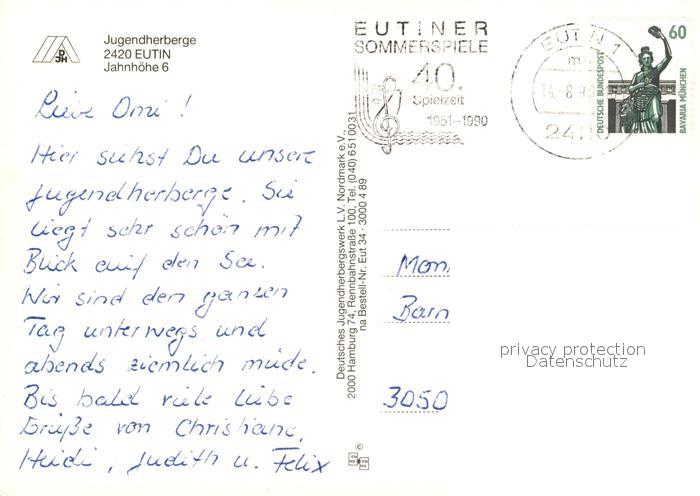 Jugendherberge
2420 EUTIN
Jahnhöhe 6
DJH
EUTINER
SOMMERSPIELE
40.
Spielzeit
1951–1990
EUTIN 1
60
DEUTSCHE BUNDESPOST
BAVARIA MÜNCHEN
Liebe Omi!
Hier siehst Du unsere
Jugendherberge. Sie
liegt sehr schön mit
Blick auf den See.
Wir sind den ganzen
Tag unterwegs und
abends ziemlich müde.
Bis bald viele liebe
Grüße von Christiane,
Heidi, Judith u. Felix
Deutsches Jugendherbergswerk L.V. Nordmark e.V.,
2000 Hamburg 74, Rennbahnstraße 100, Tel. (040) 6510031
na Bestell-Nr. Eut 34 · 3000 4 89
Mon
Barn
3050
privacy protection
Datenschutz